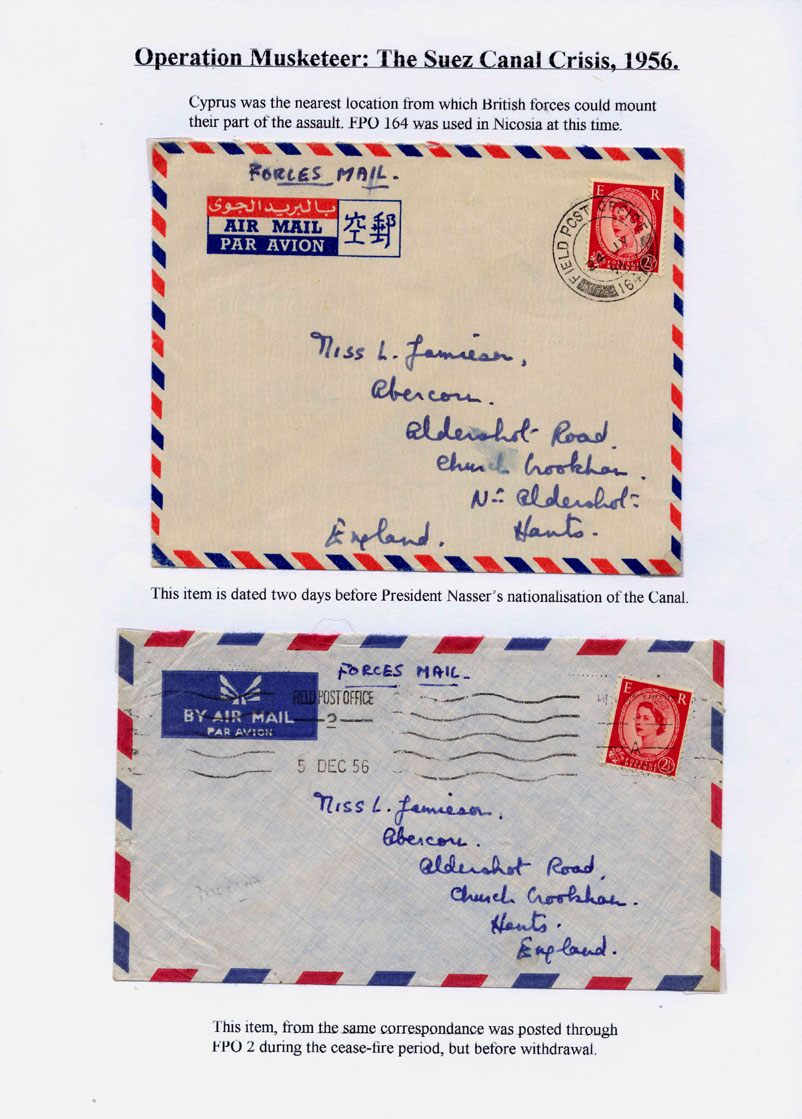 Operation Musketeer: The Suez Canal Crisis, 1956.
Cyprus was the nearest location from which British forces could mount
their part of the assault. FPO 164 was used in Nicosia at this time.
FORCES MAIL.
بالبريد الجوى
AIR MAIL
PAR AVION
空郵
E R
FIELD POST OFFICE
164
2½
Miss L. Jamieson,
Abercorn.
Aldershot Road.
Church Crookham.
Nr Aldershot
Hants.
England.
This item is dated two days before President Nasser's nationalisation of the Canal.
FORCES MAIL
BY AIR MAIL
PAR AVION
FIELD POST OFFICE
2
5 DEC 56
E R
A
POSTAGE
REVENUE
2½
Miss L. Jamieson.
Abercorn.
Aldershot Road.
Church Crookham.
Hants.
England.
This item, from the same correspondance was posted through
FPO 2 during the cease-fire period, but before withdrawal.